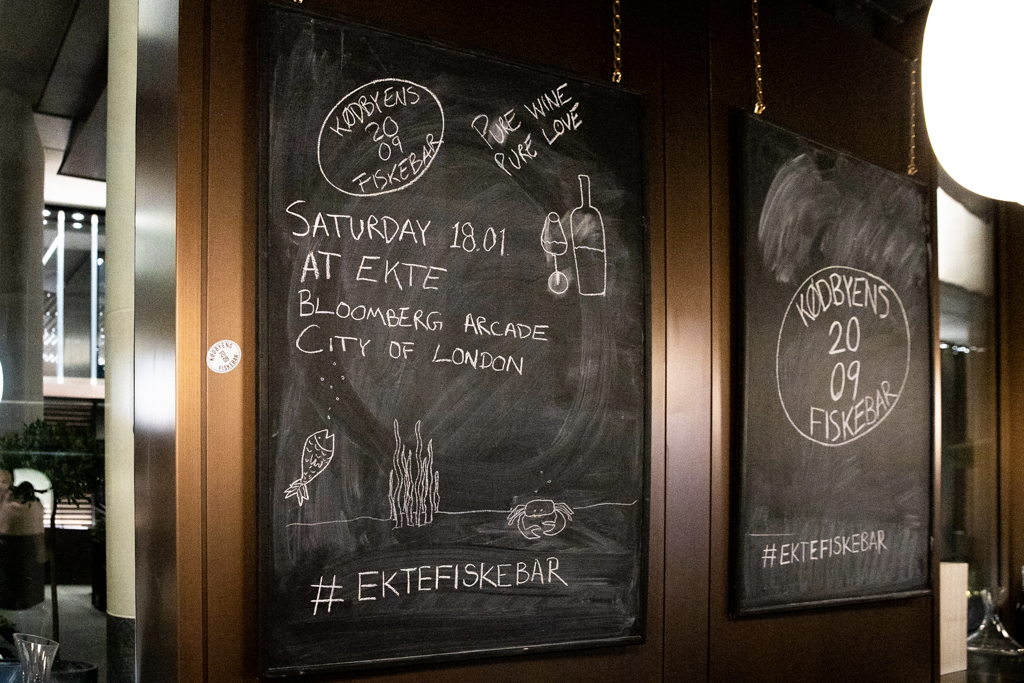 KØDBYENS
20
09
FISKEBAR
PURE WINE
PURE LOVE
SATURDAY 18.01
AT EKTE
BLOOMBERG ARCADE
CITY OF LONDON
#EKTEFISKEBAR
KØDBYENS
20
09
FISKEBAR
KØDBYENS
20
09
FISKEBAR
#EKTEFISKEBAR